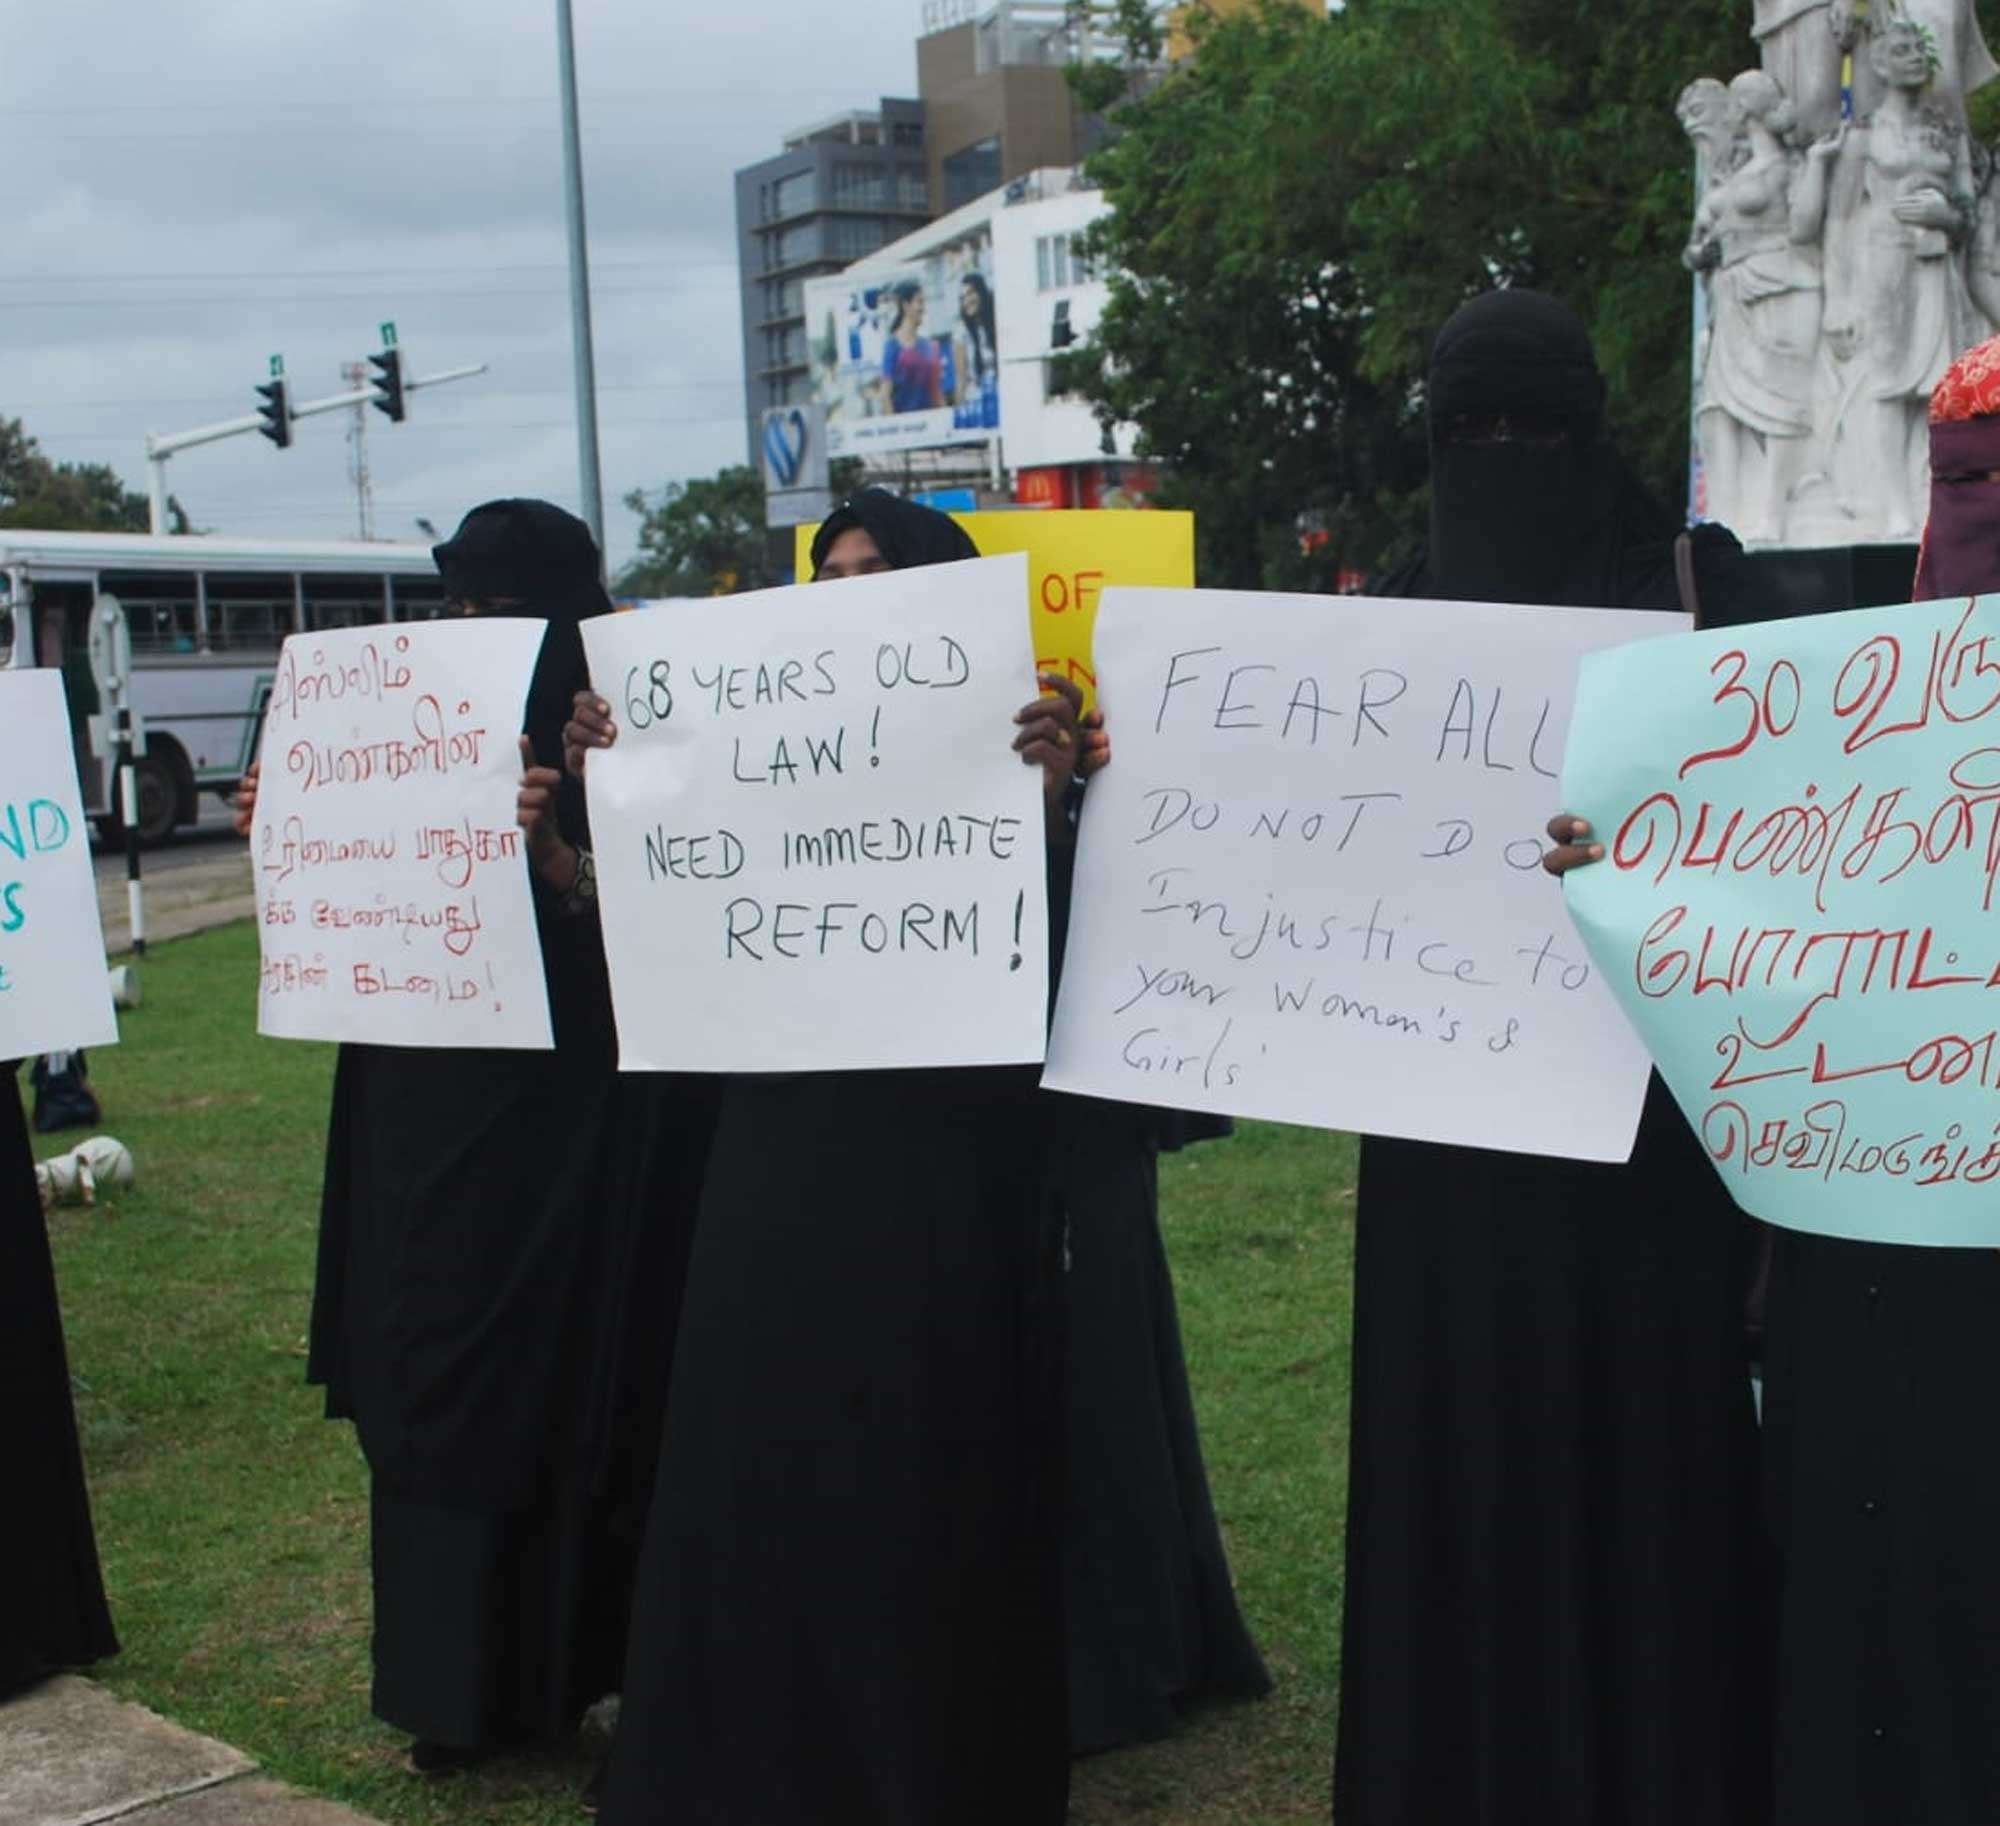 ND
முஸ்லிம்
பெண்களின்
உரிமையை பாதுகா
க்க வேண்டியது
அரசின் கடமை!
68 YEARS OLD
LAW!
NEED IMMEDIATE
REFORM!
OF
EN
FEAR ALL
DO NOT DO
Injustice to
your Women's &
Girls'
30 வரு
பெண்களி
போராட்ட
உடன
செவிமடுங்க